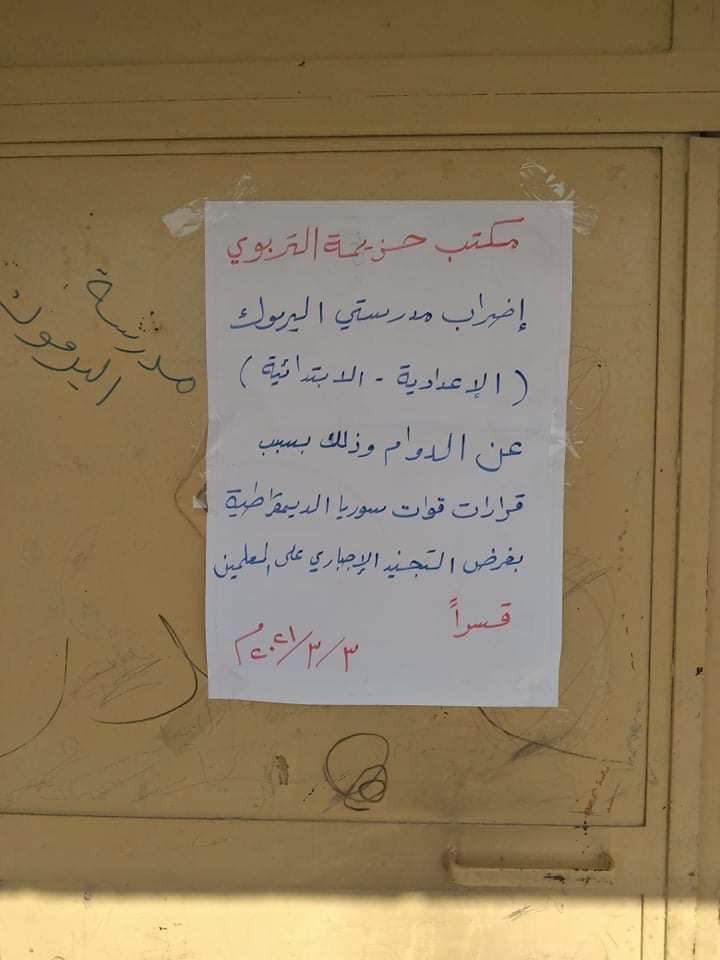 مكتب حزيمة التربوي
إضراب مدرستي اليرموك
( الإعدادية - الابتدائية )
عن الدوام وذلك بسبب
قرارات قوات سوريا الديمقراطية
بفرض التجنيد الإجباري على المعلمين
قسراً
٣/٣/٢٠٢١م
مدرسة
اليرموك